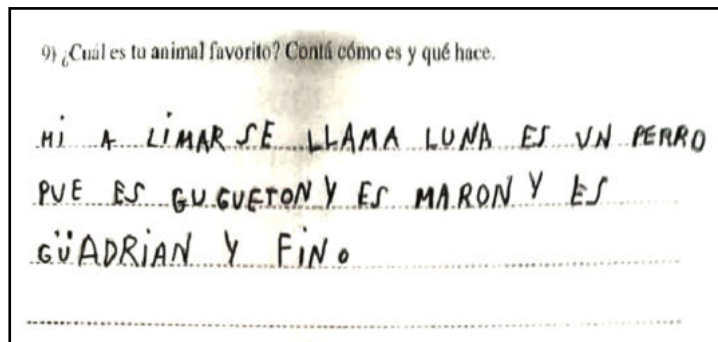 9) ¿Cuál es tu animal favorito? Contá cómo es y qué hace.
Mi A LiMAR SE LLAMA LUNA ES UN PERRO
PUE ES GUGUETON Y ES MARON Y ES
GÜADRiAN Y FiN.